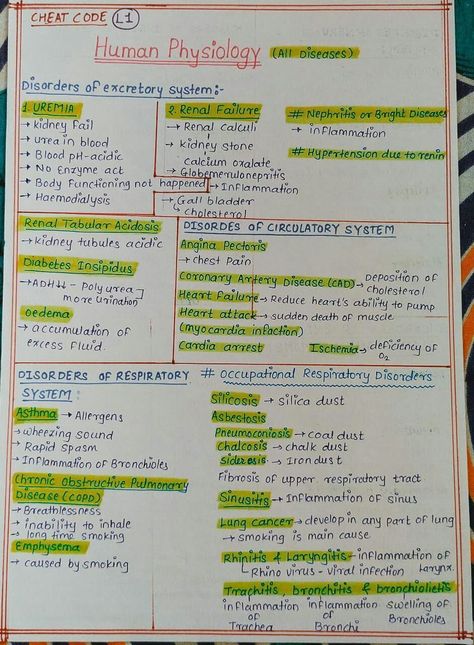 CHEAT CODE L1
Human Physiology (All Diseases)
Disorders of excretory system:-
1. UREMIA
→ kidney fail
→ urea in blood
→ Blood pH-acidic
→ No Enzyme act
→ Body Functioning not happened
→ Haemodialysis
2. Renal Failure
→ Renal calculi
→ kidney stone
calcium oxalate
→ Globemerulonepritis
→ Inflammation
→ Gall bladder
cholesterol
# Nephritis or Bright Diseases
→ inflammation
# Hypertension due to renin
Renal Tabular Acidosis
→ kidney tubules acidic
Diabetes Insipidus
→ ADH↓↓ - Polyurea
more Urination
oedema
→ accumulation of
excess fluid.
DISORDES OF CIRCULATORY SYSTEM
Angina Pectoris
→ chest Pain
Coronary Artery Disease (CAD) → Deposition of
cholesterol
Heart Failure → Reduce heart's ability to pump
Heart attack → sudden death of muscle
(myocardia infaction)
Cardia arrest
Ischemia → deficiency of
O2
DISORDERS OF RESPIRATORY
SYSTEM:
Asthma → Allergens
→ wheezing sound
→ Rapid spasm
→ Inflammation of Bronchioles
Chronic Obstructive Pulmonary
Disease (COPD)
→ Breathlessness
→ inability to inhale
→ long time smoking
Emphysema
→ caused by smoking
# Occupational Respiratory Disorders
Silicosis → silica dust
Asbestosis
Pneumoconiosis → coal dust
Chalcosis → chalk dust
Siderosis → Iron dust
Fibrosis of upper respiratory tract
Sinusitis → Inflammation of sinus
Lung cancer → develop in any part of lung
→ smoking is main cause
Rhinitis & Laryngitis - inflammation of
Larynx.
Rhino virus - viral infection
Trachitis, bronchitis & bronchiolietis
inflammation inflammation swelling of
of of Bronchioles
Trachea Bronchi